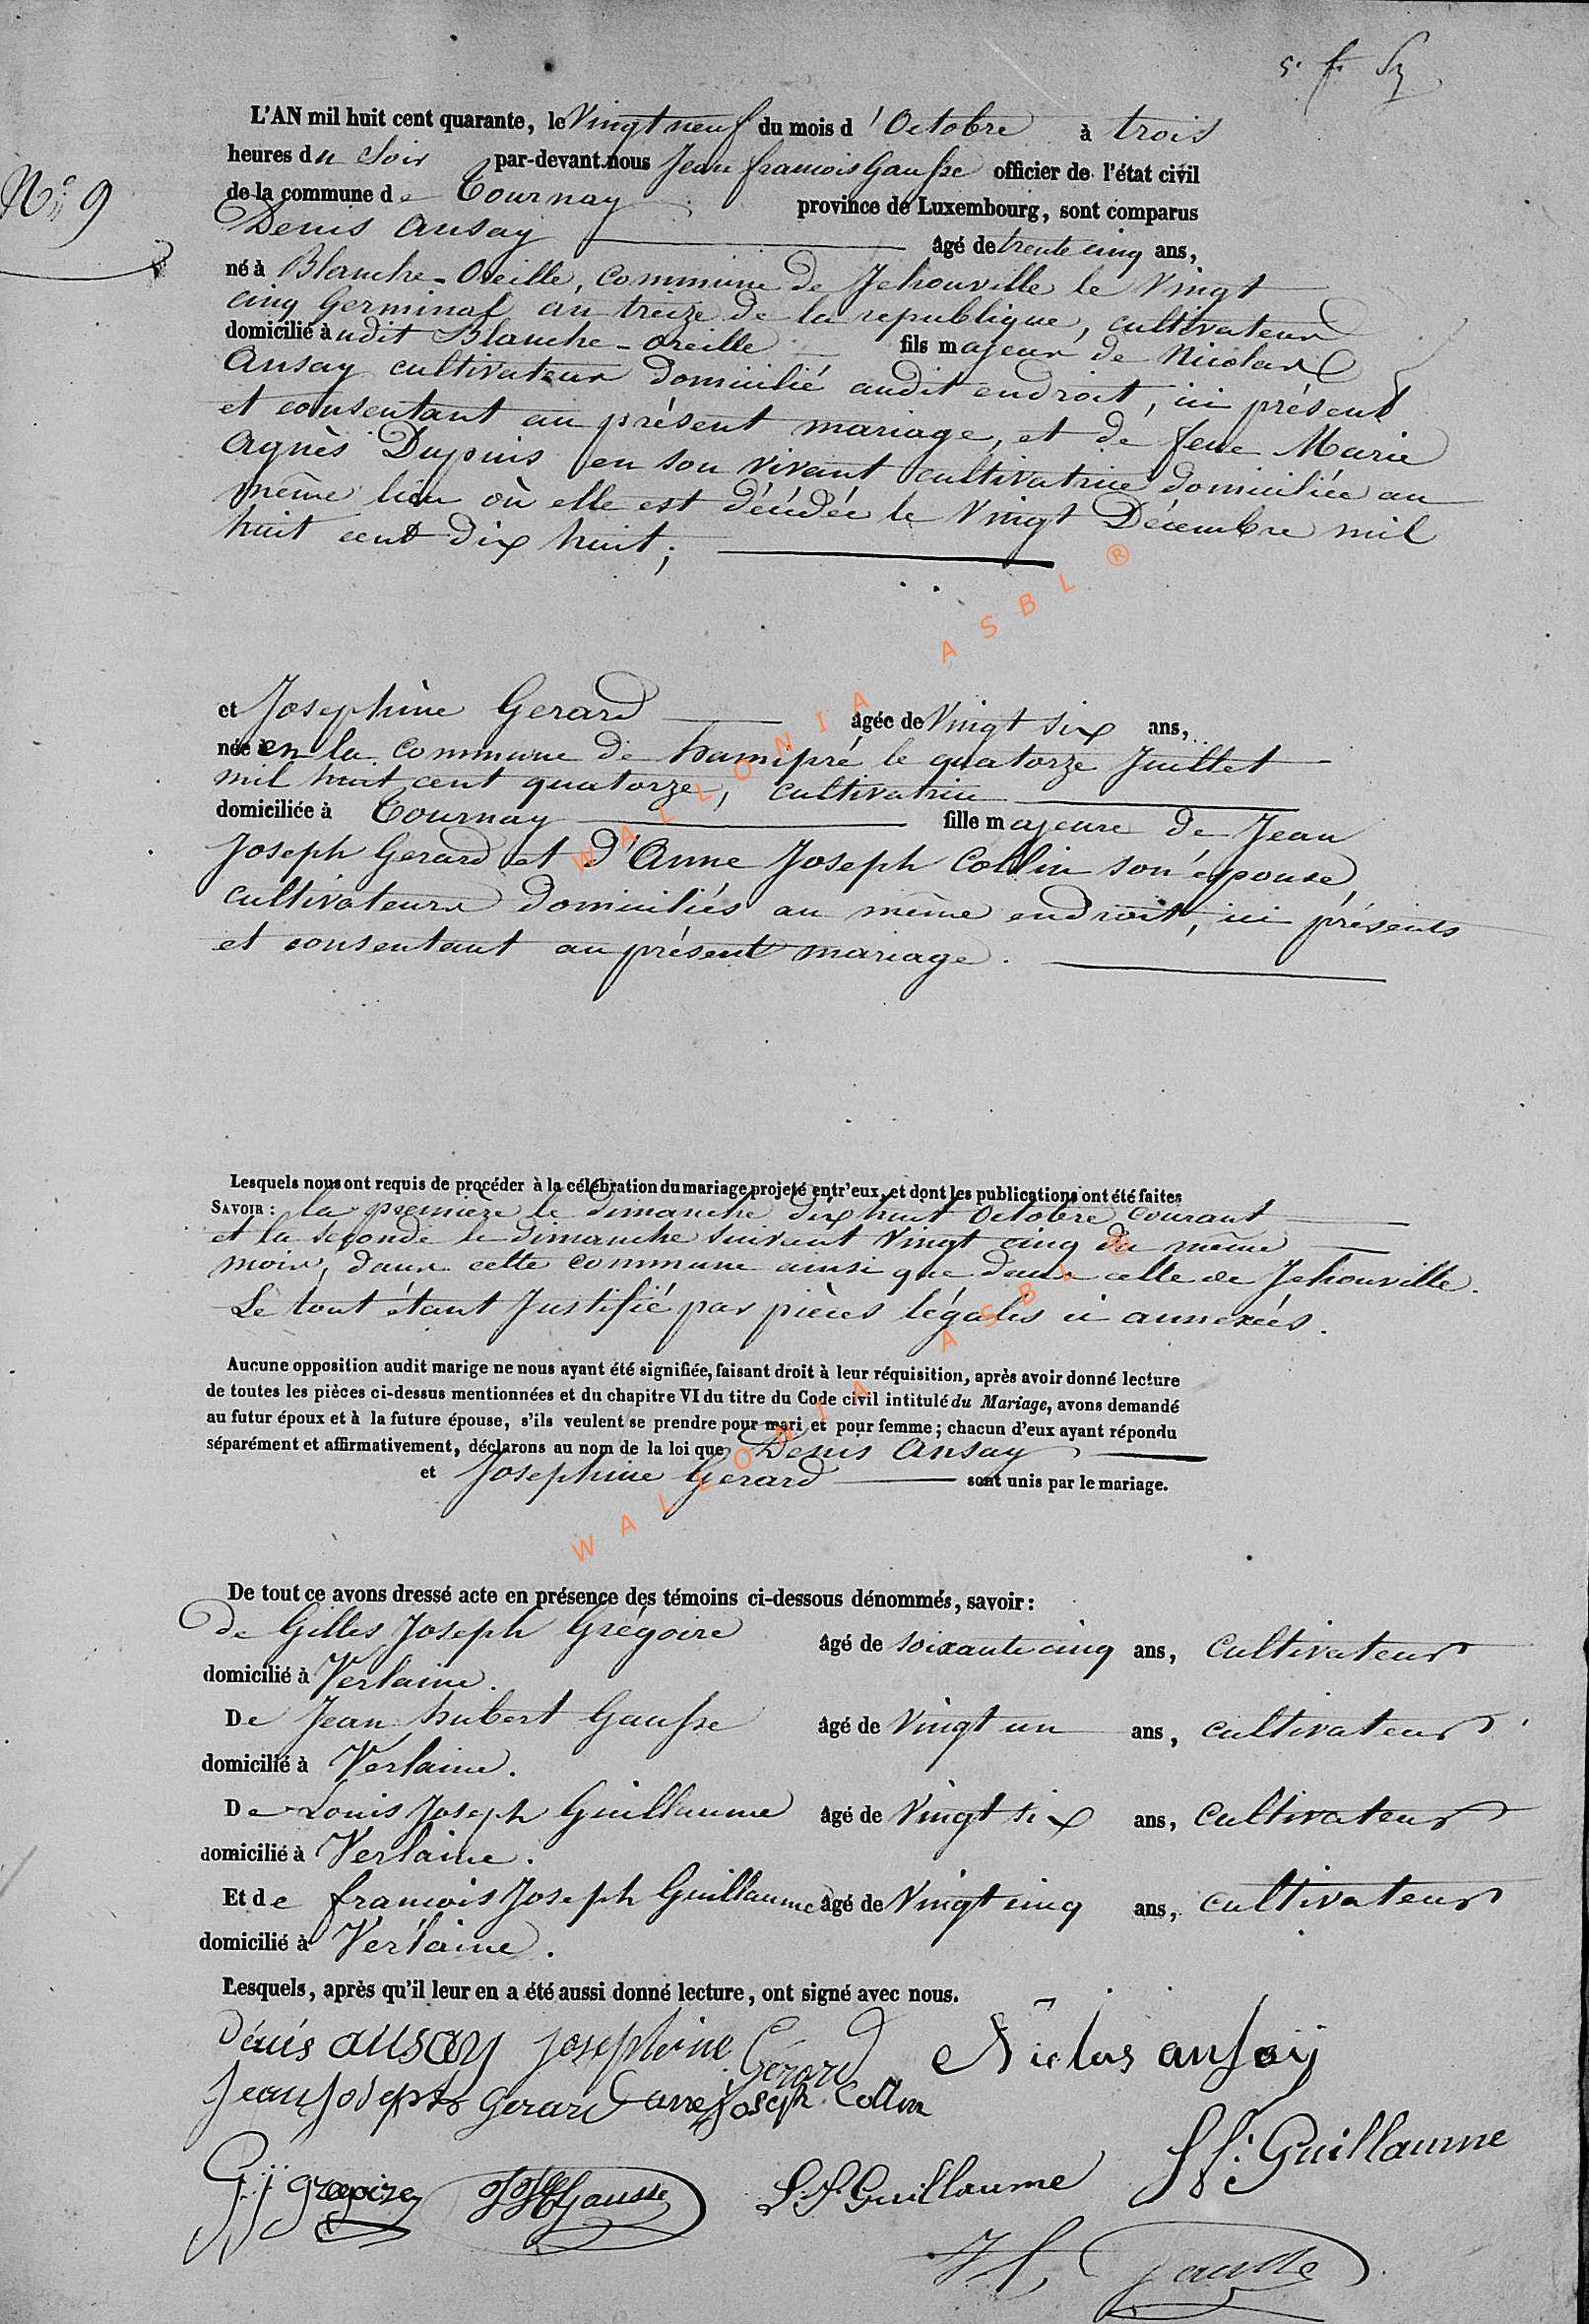 L'AN mil huit cent quarante, le Vingt neuf du mois d'Octobre à trois
heures du Soir par-devant nous Jean francois Gausse officier de l'état civil
N° 9
de la commune de Tournay province de Luxembourg, sont comparus
Denis Ansay âgé de trente cinq ans,
né à Blanche-Oreille, commune de Jehonville le Vingt
cinq Germinal an treize de la republique, cultivateur
domicilié audit Blanche-oreille fils majeur de Nicolas
Ansay cultivateur domicilié audit endroit, ici présent
et consentant au présent mariage, et de feue Marie
Agnès Dupuis en son vivant cultivatrice domiciliée au
même lieu où elle est décédée le Vingt Décembre mil
huit cent dix huit;
et Josephine Gerard âgée de Vingt six ans,
née en la commune de hamipré le quatorze Juillet
mil huit cent quatorze, cultivatrice
domiciliée à Tournay fille majeure de Jean
Joseph Gerard et d'Anne Joseph Collin son épouse,
cultivateurs domiciliés au même endroit, ici présents
et consentant au présent mariage.
Lesquels nous ont requis de procéder à la célébration du mariage projeté entr'eux, et dont les publications ont été faites
SAVOIR : la première le dimanche dix huit Octobre courant
et la seconde le dimanche suivant Vingt cinq du même
mois, dans cette commune ainsi que dans celle de Jehonville.
Le tout étant Justifié par pièces légales ci annexées.
Aucune opposition audit marige ne nous ayant été signifiée, faisant droit à leur réquisition, après avoir donné lecture
de toutes les pièces ci-dessus mentionnées et du chapitre VI du titre du Code civil intitulé du Mariage, avons demandé
au futur époux et à la future épouse, s'ils veulent se prendre pour mari et pour femme ; chacun d'eux ayant répondu
séparément et affirmativement, déclarons au nom de la loi que Denis Ansay
et Josephine Gerard sont unis par le mariage.
De tout ce avons dressé acte en présence des témoins ci-dessous dénommés, savoir :
de Gilles Joseph Grégoire âgé de soixante cinq ans, cultivateur
domicilié à Verlaine.
De Jean hubert Gausse âgé de Vingt un ans, cultivateur
domicilié à Verlaine.
De Louis Joseph Guillaume âgé de Vingt six ans, cultivateur
domicilié à Verlaine.
Et de francois Joseph Guillaume âgé de Vingt cinq ans, cultivateur
domicilié à Verlaine.
Lesquels, après qu'il leur en a été aussi donné lecture, ont signé avec nous.
Dénis ansay josephine Gérard Nicolas ansay
jean joseph Gerard anne joseph Collin
G:j: gregoire JH Gausse L.J. Guillaume f J: Guillaume
J f, gausse
WALLONIA ASBL ®
WALLONIA ASBL ®